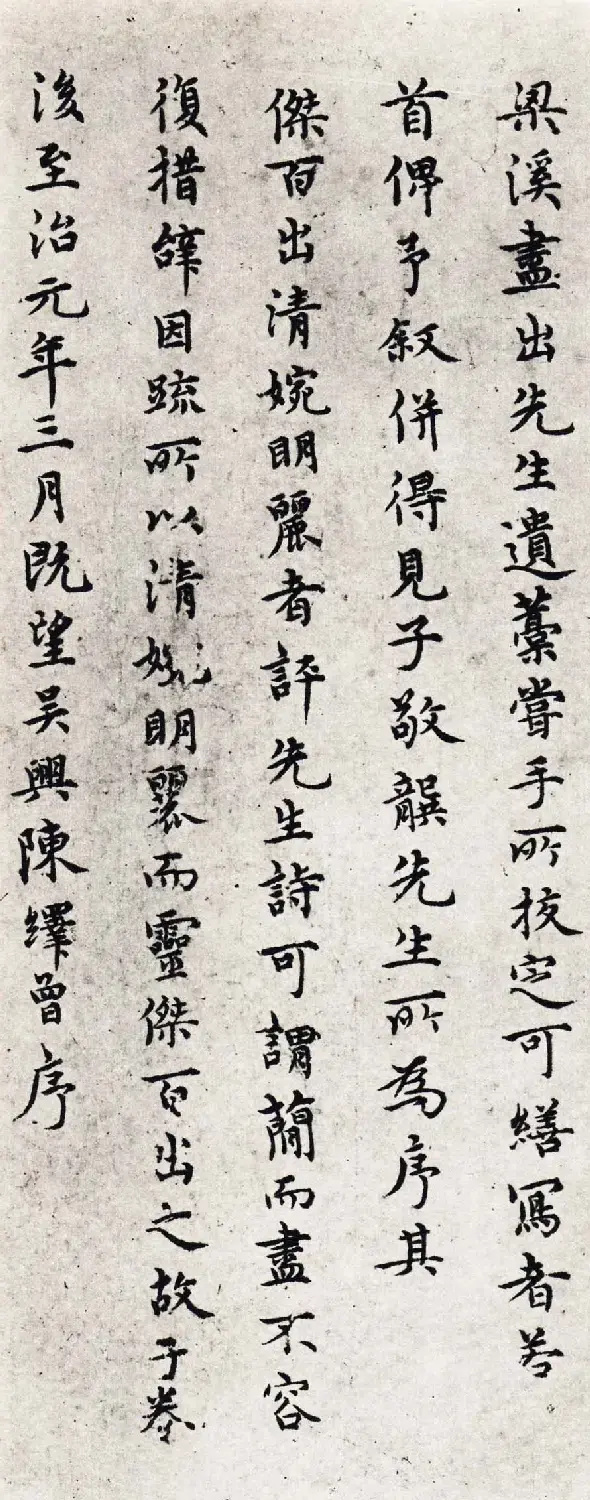 梁溪盡出先生遺藁嘗手所挍定可繕寫者若
首俾予叙併得見子敬龔先生所為序其
傑百出清婉明麗者評先生詩可謂蕳而盡不容
復措辭因疏所以清婉明麗而靈傑百出之故于卷
後至治元年三月既望吴興陳繹曾序